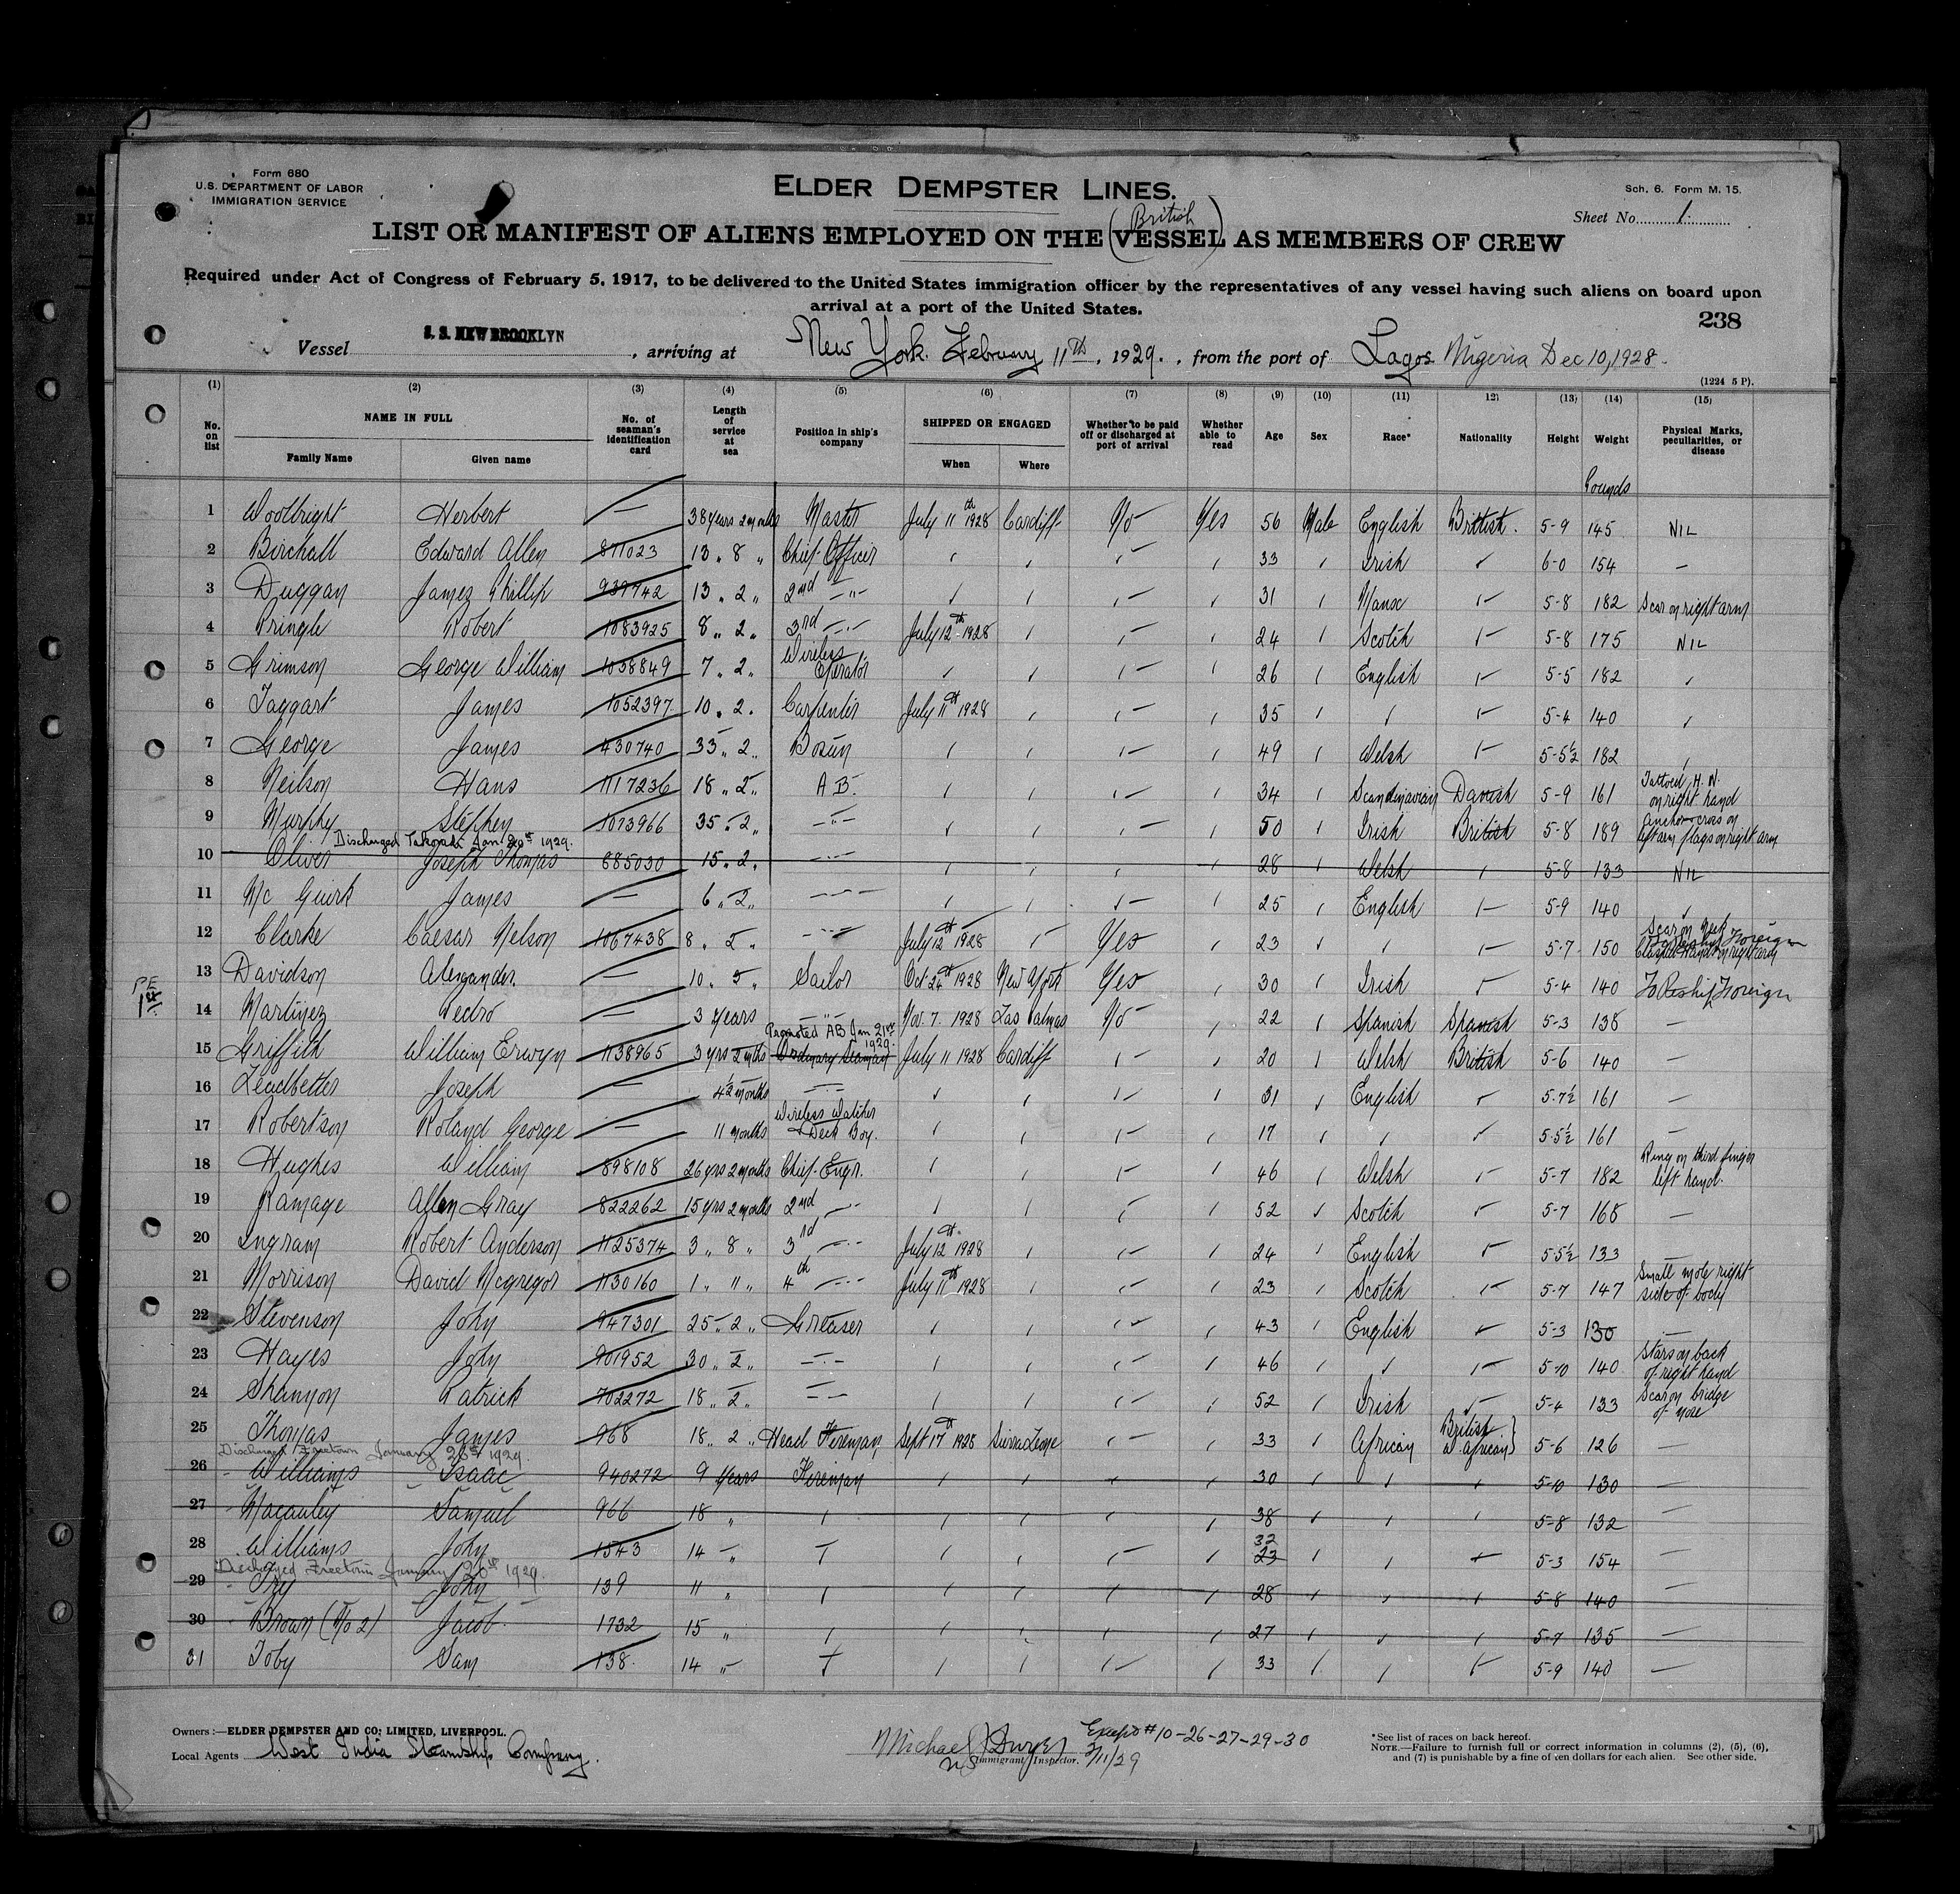 Form 680
U.S. DEPARTMENT OF LABOR
IMMIGRATION SERVICE
ELDER DEMPSTER LINES.
Sch. 6. Form M. 15.
Sheet No. 1.
(British)
LIST OR MANIFEST OF ALIENS EMPLOYED ON THE VESSEL AS MEMBERS OF CREW
Required under Act of Congress of February 5, 1917, to be delivered to the United States immigration officer by the representatives of any vessel having such aliens on board upon
arrival at a port of the United States.
238
Vessel S. S. NEW BROOKLYN, arriving at New York. February 11th, 1929., from the port of Lagos Nigeria Dec 10, 1928.
(1224 5 P).
(1) (2) (3) (4) (5) (6) (7) (8) (9) (10) (11) 12) (13) (14) (15)
No. on list NAME IN FULL Family Name Given name No. of seaman's identification card Length of service at sea Position in ship's company SHIPPED OR ENGAGED When Where Whether to be paid off or discharged at port of arrival Whether able to read Age Sex Race* Nationality Height Weight Physical Marks, peculiarities, or disease
Pounds
1 Woolbright Herbert — 38 years 2 months Master July 11th 1928 Cardiff No Yes 56 Male English British. 5-9 145 NIL
2 Birchall Edward Allen 871023 13 " 8 " Chief Officer 33 Irish 6-0 154 —
3 Duggan James Phillip 939742 13 " 2 " 2nd —"— 31 Manx 5-8 182 Scar on right arm
4 Pringle Robert 1083925 8 " 2 " 3rd —"— July 12th 1928 24 Scotch 5-8 175 NIL
5 Grimson George William 1038849 7 " 2 " Wireless Operator 26 English 5-5 182
6 Taggart James 1052397 10 " 2 " Carpenter July 11th 1928 35 5-4 140
7 George James 430740 35 " 2 " Bosun 49 Welsh 5-5½ 182
8 Neilson Hans 1117236 18 " 2 " A B. 34 Scandinavian Danish 5-9 161 Tattoed H. N. on right hand
9 Murphy Stephen 1073966 35 " 2 " —"— 50 Irish British 5-8 189 Anchor cross on left arm flags on right arm
Discharged Takoradi Jan 1929.
10 Oliver Joseph Thomas 885030 15 " 2 " —"— 28 Welsh 5-8 133 NIL
11 Mc Guirk James — 6 " 2 " —"— 25 English 5-9 140
12 Clarke Caesar Nelson 1067438 8 " 5 " —"— July 12th 1928 Yes 23 5-7 150 Scar on neck Clasped Hands on right arm To Reship Foreign
13 Davidson Alexander. — 10 " 5 " Sailor Oct 24th 1928 New York Yes 30 Irish 5-4 140 To Reship Foreign
14 Martinez Pedro — 3 years —"— Nov. 7. 1928 Las Palmas No 22 Spanish Spanish 5-3 138 —
Promoted AB Jan 21st 1929.
15 Griffith William Erwyn 1138965 3 yrs 2 mths Ordinary Seaman July 11 1928 Cardiff 20 Welsh British 5-6 140 —
16 Leadbetter Joseph — 4½ months —"— 31 English 5-7½ 161 —
17 Robertson Roland George — 11 months Wireless Watcher & Deck Boy. 17 5-5½ 161 —
18 Hughes William 898108 26 yrs 2 months Chief Engr. 46 Welsh 5-7 182 Ring on third finger left hand.
19 Ramage Allen Gray 822262 15 yrs 2 months 2nd —"— 52 Scotch 5-7 168 —
20 Ingram Robert Anderson 1125374 3 " 8 " 3rd —"— July 12th 1928 24 English 5-5½ 133 —
21 Morrison David Mcgregor 1130160 1 " 11 " 4th —"— July 11th 1928 23 Scotch 5-7 147 Small mole right side of body
22 Stevenson John 947301 25 " 2 " Greaser 43 English 5-3 130 —
23 Hayes John 901952 30 " 2 " —"— 46 5-10 140 Stars on back of right hand
24 Shannon Patrick 702272 18 " 2 " —"— 52 Irish 5-4 133 Scar on bridge of nose
25 Thomas James 968 18 " 2 " Head Fireman Sept 17th 1928 Sierra Leone 33 African British W African} 5-6 126 —
Discharged Freetown January 26th 1929.
26 Williams Isaac 940272 9 years Fireman 30 5-10 130 —
27 Macauley Samuel 966 18 " 38 5-8 132 —
28 Williams John 1543 14 " 32 23 5-3 154 —
Discharged Freetown January 26th 1929.
29 Try John 139 11 " 28 5-8 140 —
30 Brown (No 2) Jacob 1732 15 " 27 5-7 135 —
31 Toby Sam 138. 14 " 33 5-9 140 —
PE
Owners :—ELDER DEMPSTER AND CO: LIMITED, LIVERPOOL.
Local Agents West India Steamship Company.
Michael J Dwyer Except #10-26-27-29-30
US Immigrant Inspector. 2/11/29
*See list of races on back hereof.
NOTE.—Failure to furnish full or correct information in columns (2), (5), (6),
and (7) is punishable by a fine of ten dollars for each alien. See other side.